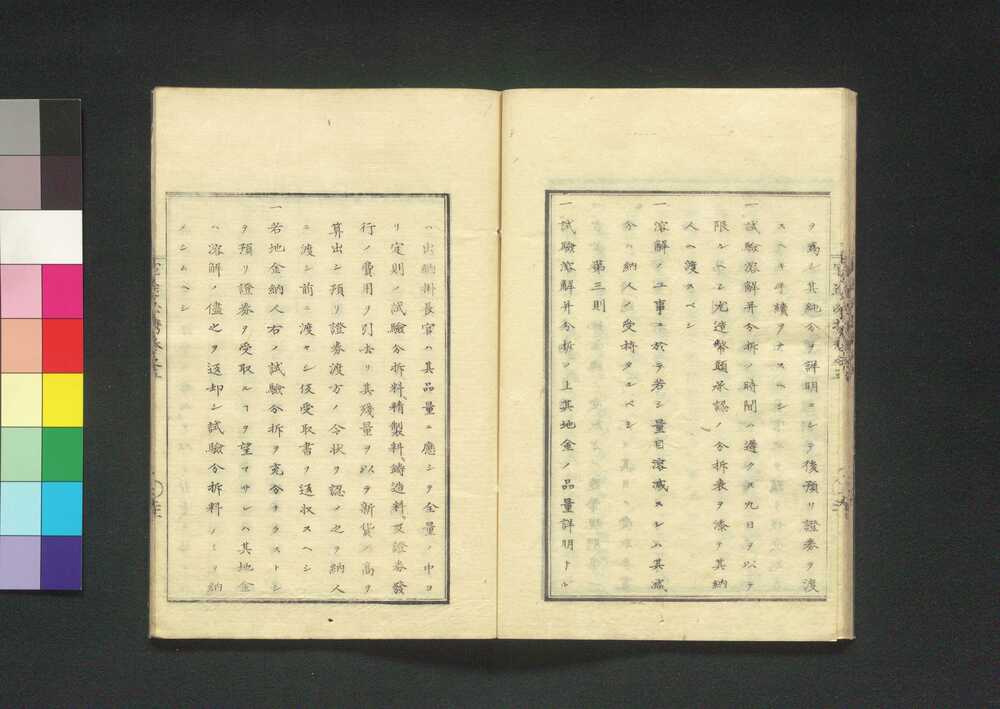 ヲ為シ其純分ヲ詳明ニシテ後預リ證券ヲ渡
スヘキ手續ヲナスヘシ
一試驗溶解并分拆ノ時間ハ遲クス九日ヲ以テ
限ルヘシ尤造幣頭承認ノ分拆表ヲ添ヲ其納
人ヘ渡スベシ
一溶解ノ工事ニ於テ若シ量目溶減スレハ其減
分ハ納人ノ受持タルベシ
第三則
一試驗溶解并分拆ノ上其地金ノ品量詳明トル
ハ出納掛長官ハ其品量ニ應シヲ全量ノ中ヨ
リ定則ノ試驗分拆料、精製料、鑄造料、及證券發
行ノ費用ヲ引去リ其殘量ヲ以テ新貨ノ高ヲ
算出シ預リ證券渡方ノ令状ヲ認メ之ヲ納人
ニ渡シ前ニ渡セシ仮受取書ヲ返收スヘシ
一若地金納人右ノ試驗分拆ヲ充分ナラストシ
ヲ預リ證券ヲ受取ルヿヲ望マサレハ其地金
ハ溶解ノ儘之ヲ返却シ試驗分拆料ノミヲ納
メシムヘシ